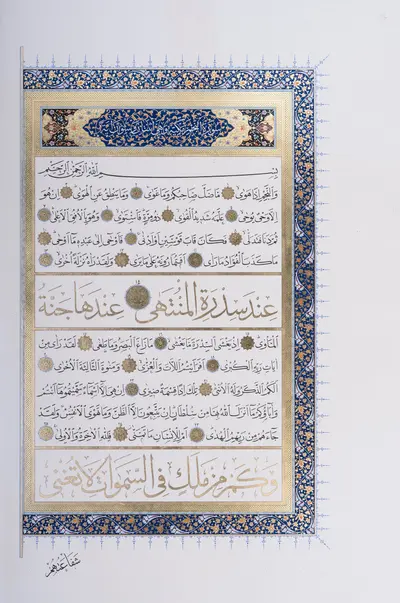 بِسْمِ اللهِ الرَّحْمٰنِ الرَّحِيمِ
وَالنَّجْمِ إِذَا هَوَىٰ مَا ضَلَّ صَاحِبُكُمْ وَمَا غَوَىٰ وَمَا يَنْطِقُ عَنِ الْهَوَىٰ إِنْ هُوَ
إِلَّا وَحْيٌ يُوحَىٰ عَلَّمَهُ شَدِيدُ الْقُوَىٰ ذُو مِرَّةٍ فَاسْتَوَىٰ وَهُوَ بِالْأُفُقِ الْأَعْلَىٰ
ثُمَّ دَنَا فَتَدَلَّىٰ فَكَانَ قَابَ قَوْسَيْنِ أَوْ أَدْنَىٰ فَأَوْحَىٰ إِلَىٰ عَبْدِهِ مَا أَوْحَىٰ
مَا كَذَبَ الْفُؤَادُ مَا رَأَىٰ أَفَتُمَارُونَهُ عَلَىٰ مَا يَرَىٰ وَلَقَدْ رَآهُ نَزْلَةً أُخْرَىٰ
عِنْدَ سِدْرَةِ الْمُنْتَهَىٰ عِنْدَهَا جَنَّةُ
الْمَأْوَىٰ إِذْ يَغْشَى السِّدْرَةَ مَا يَغْشَىٰ مَا زَاغَ الْبَصَرُ وَمَا طَغَىٰ لَقَدْ رَأَىٰ مِنْ
آيَاتِ رَبِّهِ الْكُبْرَىٰ أَفَرَأَيْتُمُ اللَّاتَ وَالْعُزَّىٰ وَمَنٰوةَ الثَّالِثَةَ الْأُخْرَىٰ
أَلَكُمُ الذَّكَرُ وَلَهُ الْأُنْثَىٰ تِلْكَ إِذًا قِسْمَةٌ ضِيزَىٰ إِنْ هِيَ إِلَّا أَسْمَاءٌ سَمَّيْتُمُوهَا أَنْتُمْ
وَآبَاؤُكُمْ مَا أَنْزَلَ اللهُ بِهَا مِنْ سُلْطَانٍ إِنْ يَتَّبِعُونَ إِلَّا الظَّنَّ وَمَا تَهْوَى الْأَنْفُسُ وَلَقَدْ
جَاءَهُمْ مِنْ رَبِّهِمُ الْهُدَىٰ أَمْ لِلْإِنْسَانِ مَا تَمَنَّىٰ فَلِلّٰهِ الْآخِرَةُ وَالْأُولَىٰ
وَكَمْ مِنْ مَلَكٍ فِي السَّمٰوَاتِ لَا تُغْنِي
شَفَاعَتُهُمْ